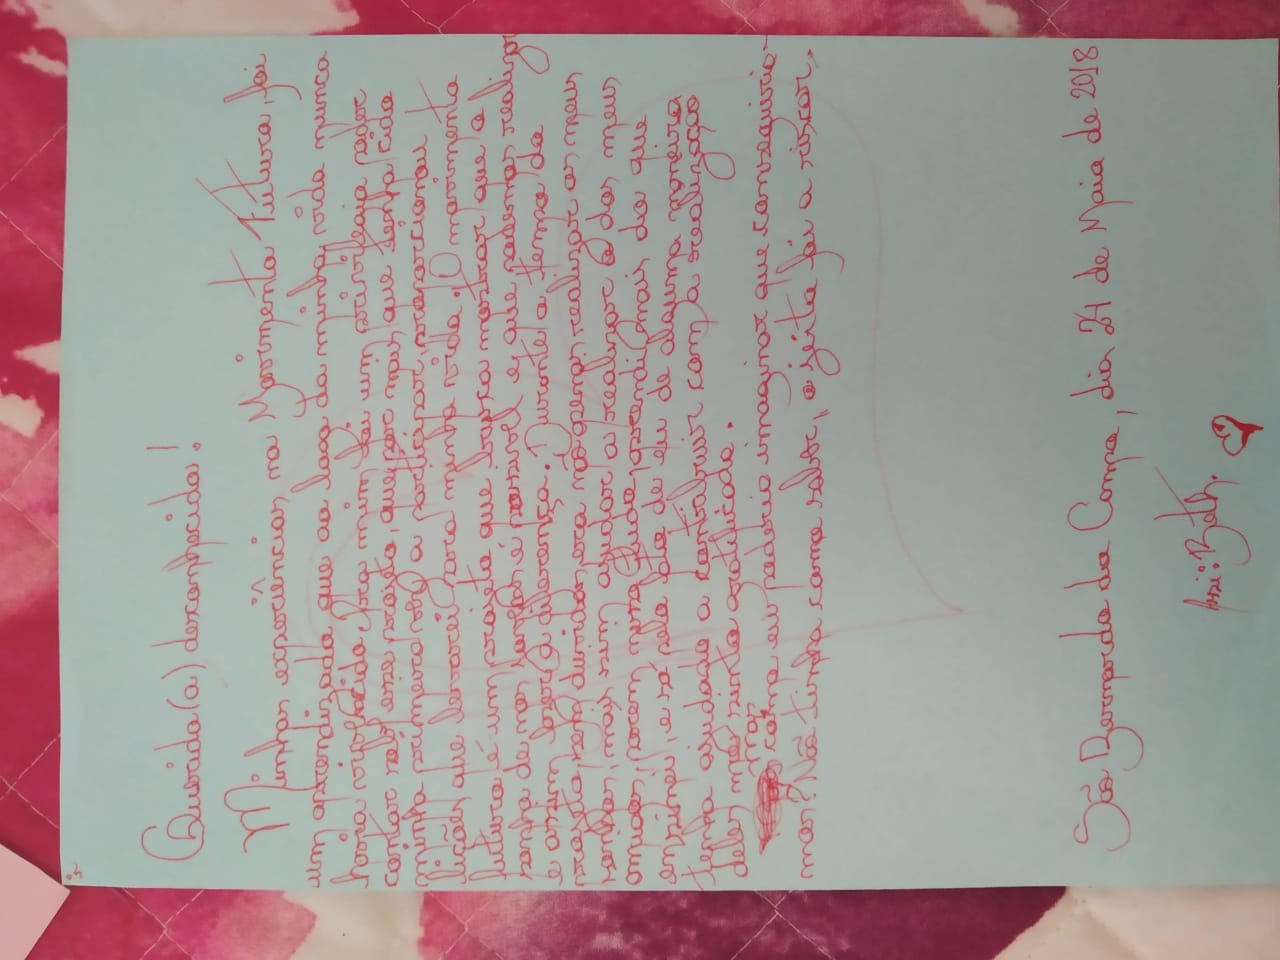 Querido(a) desconhecido!
Minhas experiências, no Movimento Futuro, foi
um aprendizado que ao logo da minha vida nunca
havia vivenciado. Pra mim foi um privilegio poder
contar sobre esse projeto, que por mais que tenha sido
minha primeira vez a participar, proporcionou
lições que levarei para minha vida. O movimento
futuro é um projeto que busca mostrar que o
sonho de nos jovens é possivel e que podemos realizar
e assim fazer a diferença. Durante o tempo do
projeto tenho duvidas, era não apenas realizar os meus
sonhos, mais sim ajudar a realizar o dos meus
amigos, porem nesse ajuda aprendi mais do que
ensinei, e só pelo fato de eu de alguma maneira
tenha ajudado a contribuir com a realização
deles me sinto gratificada.
mas como eu poderia imaginar que conseguiria-
mos? Não tinha como saber, o jeito foi a riscar.
São Bernardo do Campo, dia 24 de Maio de 2018
Assi: Beth.